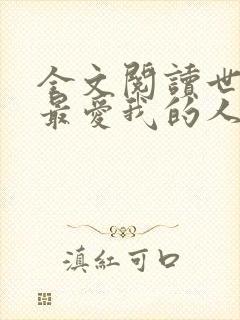 全文閱讀世
最愛我的人
滇紅可口